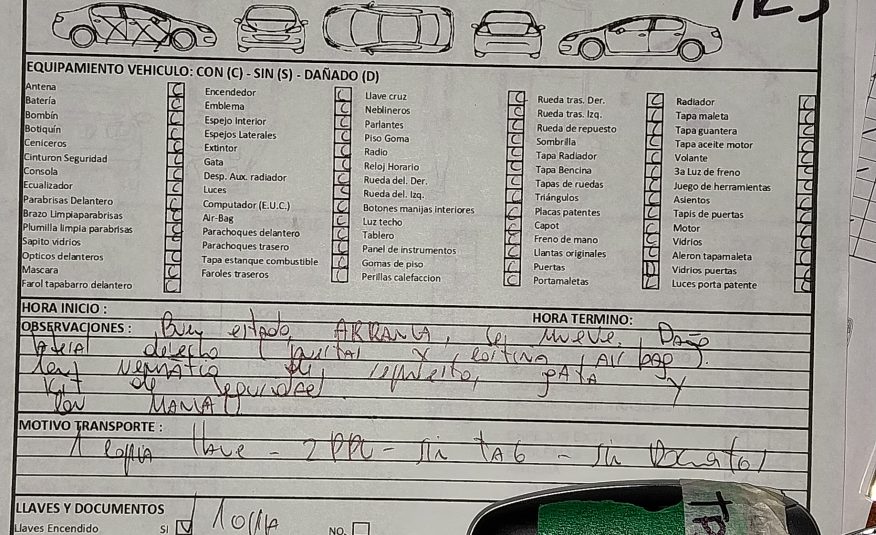 EQUIPAMIENTO VEHICULO: CON (C) - SIN (S) - DAÑADO (D)
Antena C
Batería C
Bombín C
Botiquín C
Ceniceros C
Cinturon Seguridad C
Consola C
Ecualizador C
Parabrisas Delantero C
Brazo Limpiaparabrisas C
Plumilla limpia parabrisas C
Sapito vidrios C
Opticos delanteros C
Mascara C
Farol tapabarro delantero C
Encendedor C
Emblema C
Espejo Interior C
Espejos Laterales C
Extintor C
Gata C
Desp. Aux. radiador C
Luces C
Computador (E.U.C.) C
Air-Bag C
Parachoques delantero C
Parachoques trasero C
Tapa estanque combustible C
Faroles traseros C
Llave cruz C
Neblineros C
Parlantes C
Piso Goma C
Radio C
Reloj Horario C
Rueda del. Der. C
Rueda del. Izq. C
Botones manijas interiores C
Luz techo C
Tablero C
Panel de instrumentos C
Gomas de piso C
Perillas calefaccion C
Rueda tras. Der. C
Rueda tras. Izq. C
Rueda de repuesto C
Sombrilla C
Tapa Radiador C
Tapa Bencina C
Tapas de ruedas C
Triángulos C
Placas patentes C
Capot C
Freno de mano C
Llantas originales C
Puertas D
Portamaletas C
Radiador C
Tapa maleta C
Tapa guantera C
Tapa aceite motor C
Volante C
3a Luz de freno C
Juego de herramientas C
Asientos C
Tapis de puertas C
Motor C
Vidrios C
Aleron tapamaleta C
Vidrios puertas C
Luces porta patente C
HORA INICIO :
HORA TERMINO:
OBSERVACIONES : Buen estado, ARRANCA, se mueve. Daño
lateral derecho (
Kit de seguridad
MANUAL
MOTIVO TRANSPORTE :
1 copia llave - 2 PPU - sin TAG - sin
LLAVES Y DOCUMENTOS
Llaves Encendido SI 1 copia NO.